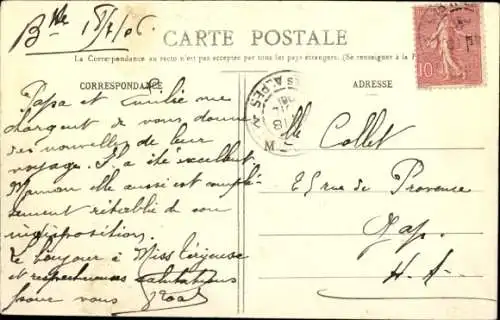 Bne 18/7/06
CARTE POSTALE
La Correspondance au recto n'est pas acceptée par tous les pays étrangers. (Se renseigner à la P
CORRESPONDANCE
ADRESSE
Papa et Emilie me
chargent de vous donner
des nouvelles de leur
voyage. Il a été excellent.
Maman elle aussi est complè-
tement rétablie de son
indisposition.
Le bonjour à Miss
et respectueuses salutations
pour vous
Mlle Collet
25 rue de Provence
Gap.
H.-A-
ES ALPES
10